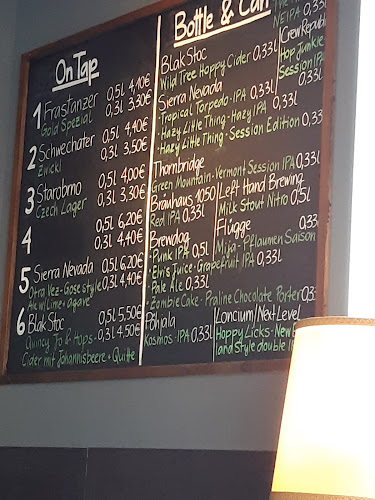 On Tap
1 Frastanzer 0,5l 4,10€
Gold Spezial 0,3l 3,20€
2 Schwechater 0,5l 4,40€
Zwickl 0,3l 3,50€
3 Starobrno 0,5l 4,00€
Czech Lager 0,3l 3,30€
4 0,5l 6,20€
0,3l 4,40€
5 Sierra Nevada 0,5l 6,20€
Otra Vez - Gose style 0,3l 4,40€
Ale w/ Lime + agave
6 Blak Stoc 0,5l 5,50€
Quincy, Jo & Hops - 0,3l 4,50€
Cider mit Johannisbeere + Quitte
Bottle & Can
Blak Stoc
Wild Tree Hoppy Cider 0,33l
Sierra Nevada
- Tropical Torpedo - IPA 0,33l
- Hazy Little Thing - Hazy IPA 0,33l
- Hazy Little Thing - Session Edition 0,33l
Thornbridge
Green Mountain - Vermont Session IPA 0,33l
Brauhaus 1050
Red IPA 0,33l
Brewdog
- Punk IPA 0,5l
- Elvis Juice - Grapefruit IPA 0,33l
Pale Ale 0,33l
- Zombie Cake - Praline Chocolate Porter 0,3
Pohjala
Kosmos - IPA 0,33l
0,33l
NEIPA
Crew Republic
Hop Junkie
Session IPA
0,33l
Left Hand Brewing
Milk Stout Nitro 0,5l
Flügge 0,33
Mija - Pflaumen Saison
Loncium/Next Level
Hoppy Licks - New
land Style double I